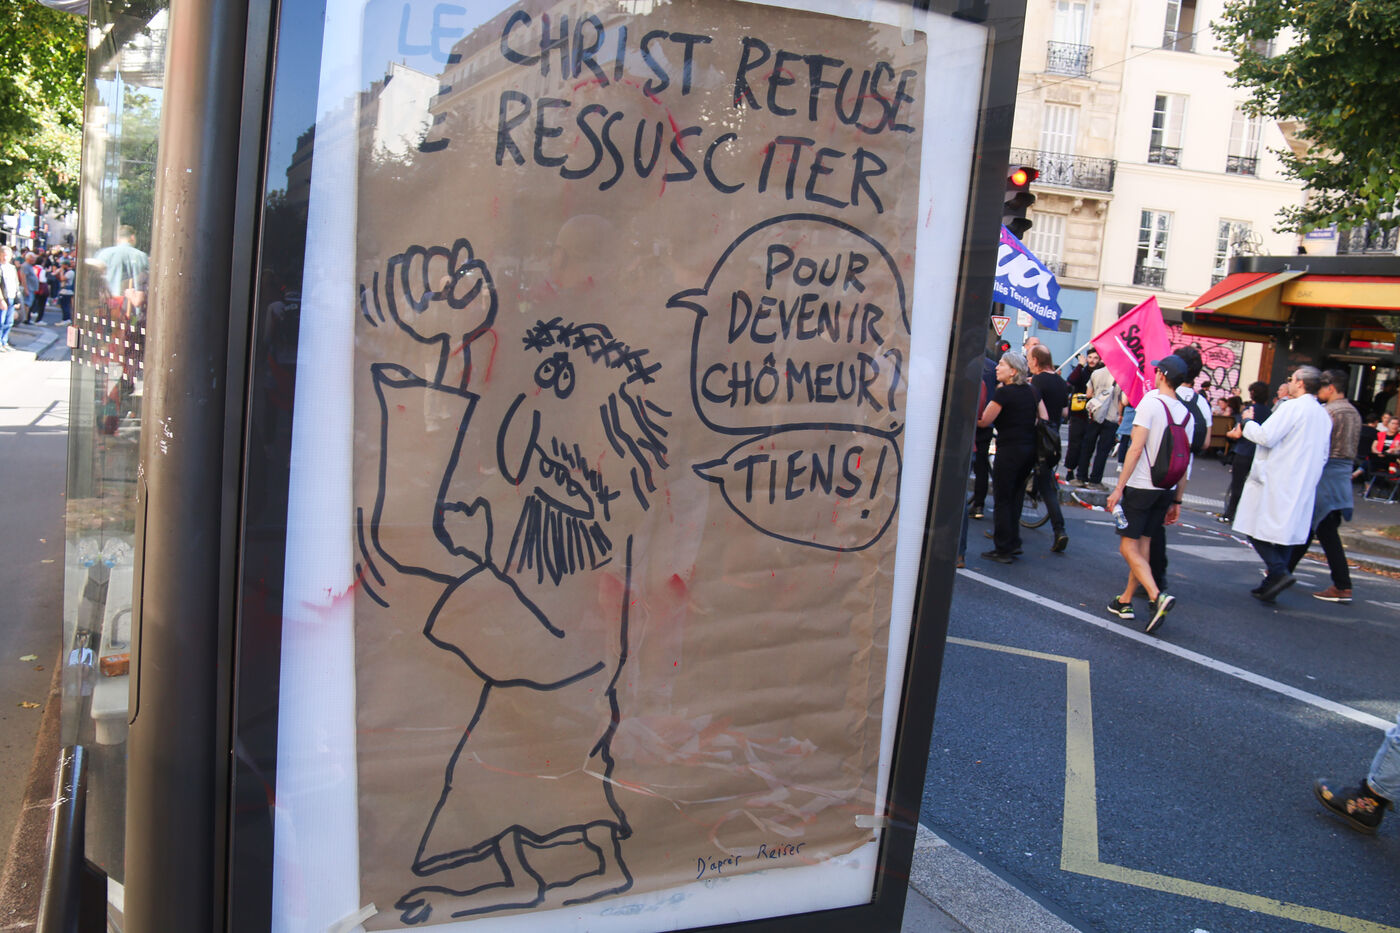 LE CHRIST REFUSE
E RESSUSCITER
POUR
DEVENIR
CHÔMEUR?
TIENS!
D'après Reiser
Territoriales
BAR